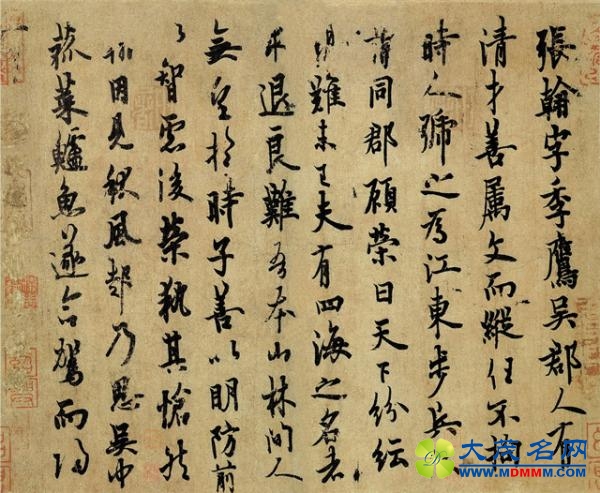 張翰字季鷹吳郡人有
清才善属文而縱任不拘
時人號之為江東步兵
謂同郡顧榮曰天下紛紜
禍難未已夫有四海之名者
求退良難吾本山林間人
無望於時子善以明防前
以智慮後榮執其愴然
翰因見秋風起乃思吳中
菰菜鱸魚遂命駕而歸
大茂名网
WWW.MDMMM.COM